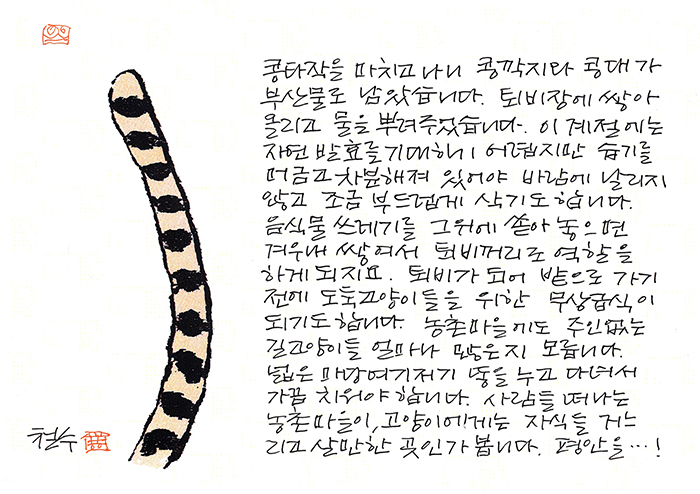 콩타작을 마치고 나니 콩깍지와 콩대가
부산물로 남았습니다. 퇴비장에 쌓아
올리고 물을 뿌려주었습니다. 이 계절에는
자연 발효를 기대하기 어렵지만 습기를
머금고 차분해져 있어야 바람에 날리지
않고 조금 부드럽게 삭기도 합니다.
음식물 쓰레기를 그위에 쏟아 놓으면
겨우내 쌓여서 퇴비꺼리로 역할을
하게 되지요. 퇴비가 되어 밭으로 가기
전에 도둑고양이들을 위한 무상급식이
되기도 합니다. 농촌마을에도 주인없는
길고양이들 얼마나 많은지 모릅니다.
넓은 마당 여기저기 똥을 누고 다녀서
가끔 치워야 합니다. 사람들 떠나는
농촌마을이, 고양이에게는 자식들 거느
리고 살만한 곳인가 봅니다. 평안을…!
철수